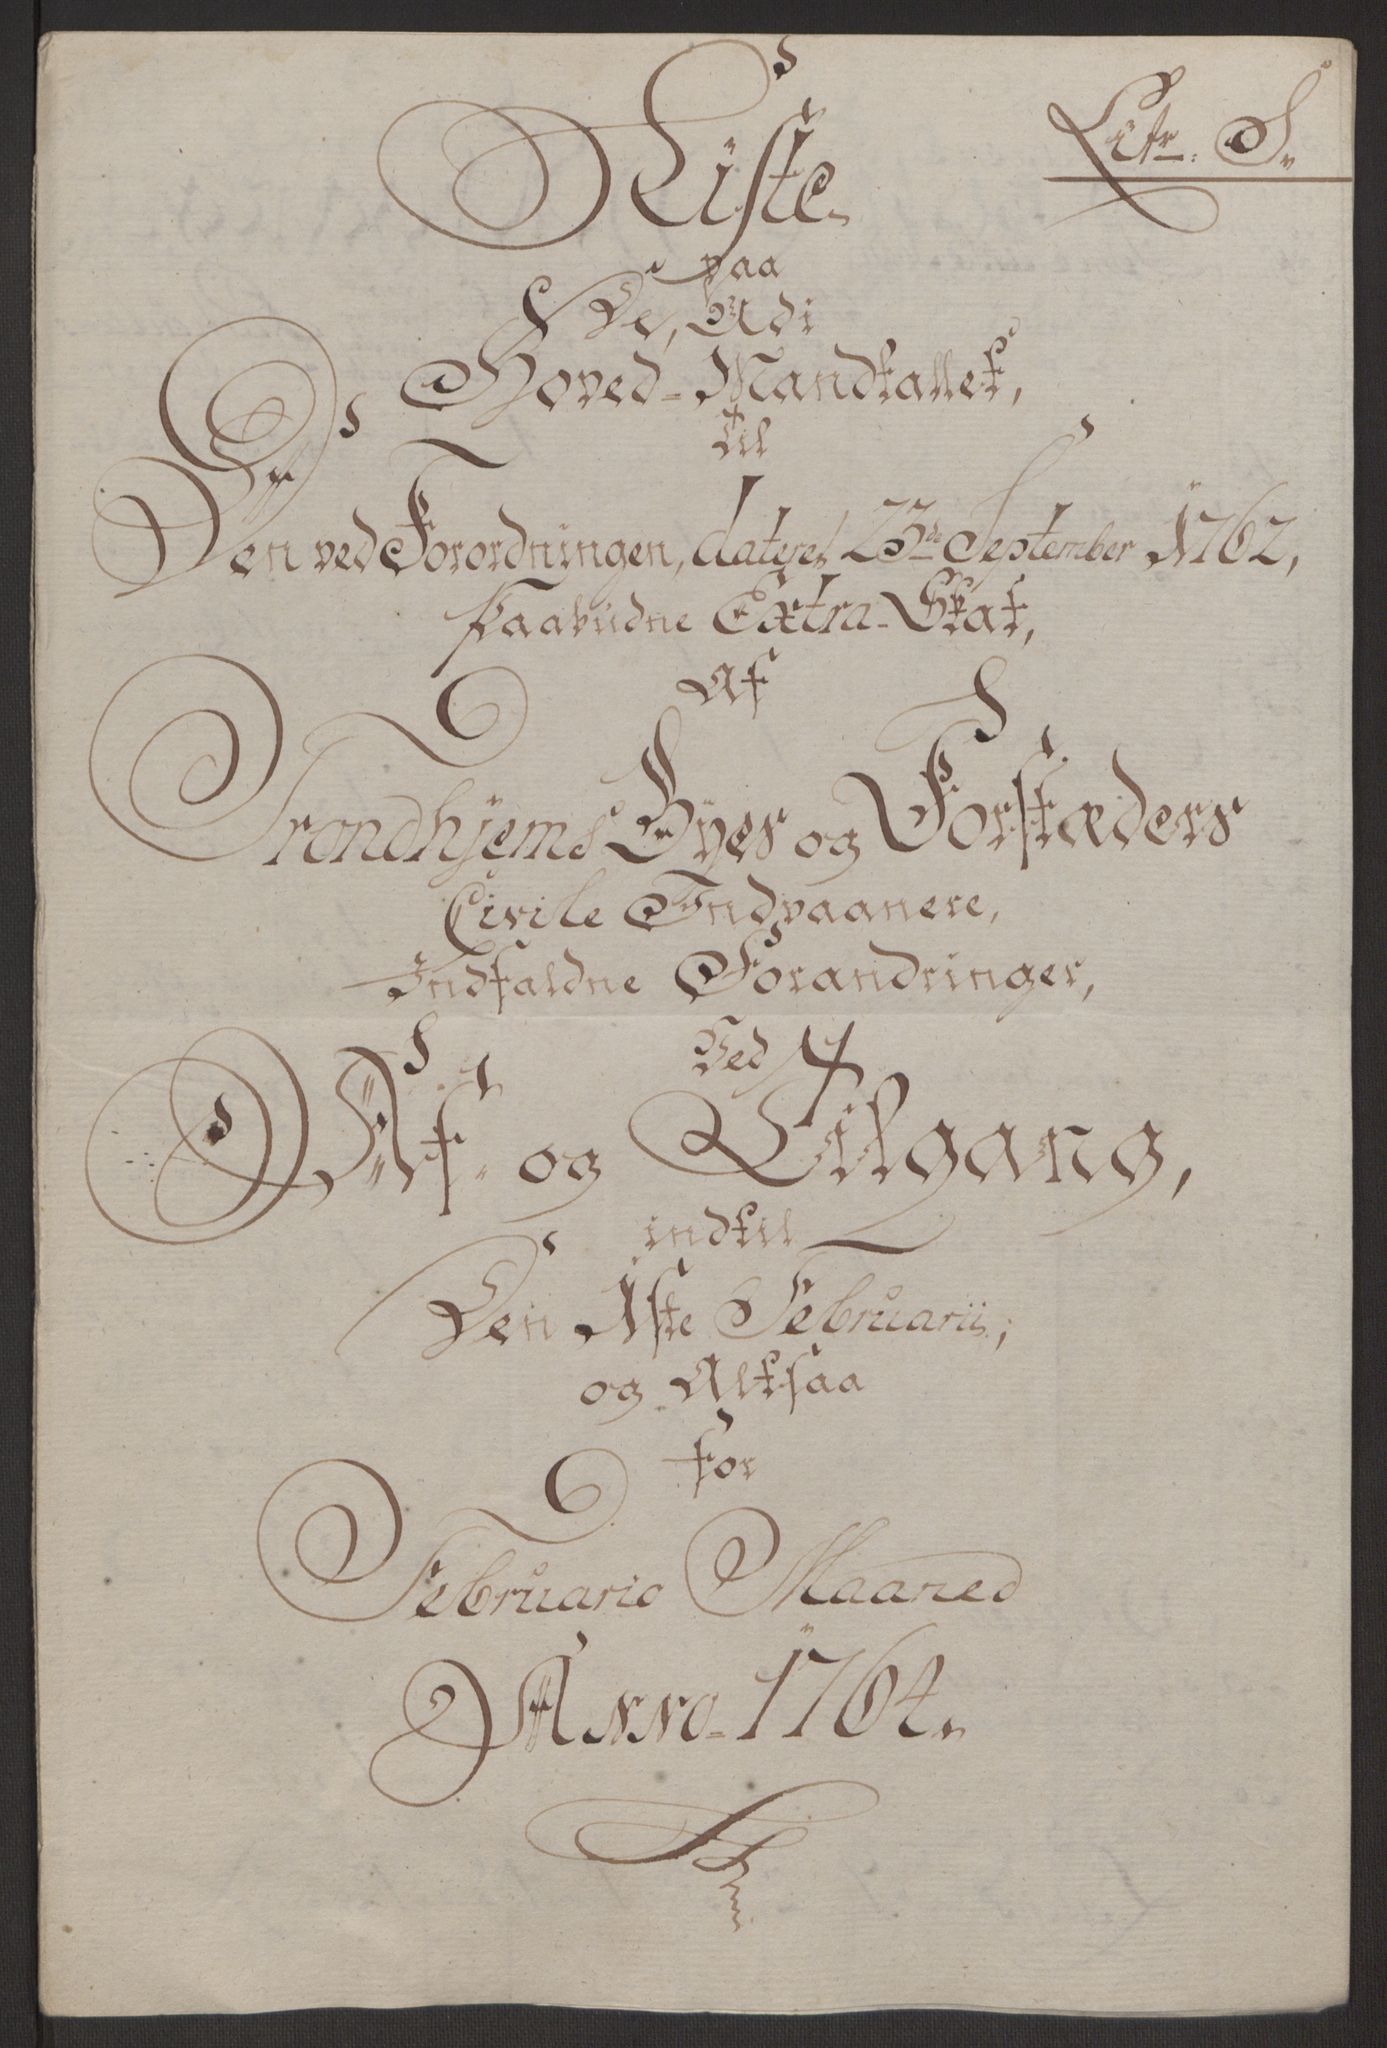 Litr: S.
Liste
paa
De, udi
Hoved-Mandtallet,
til
Den ved Forordningen, dateret 23de September 1762,
Paabudne Extra-Skat,
Af
Trondhjems Byes og Forstæders
Civile Indvaanere,
Indfaldne Forandringer,
Ved
Af- og Tilgang,
indtil
Den 1ste Februarii;
og Altsaa
for
Februario Maaned
Anno 1764.